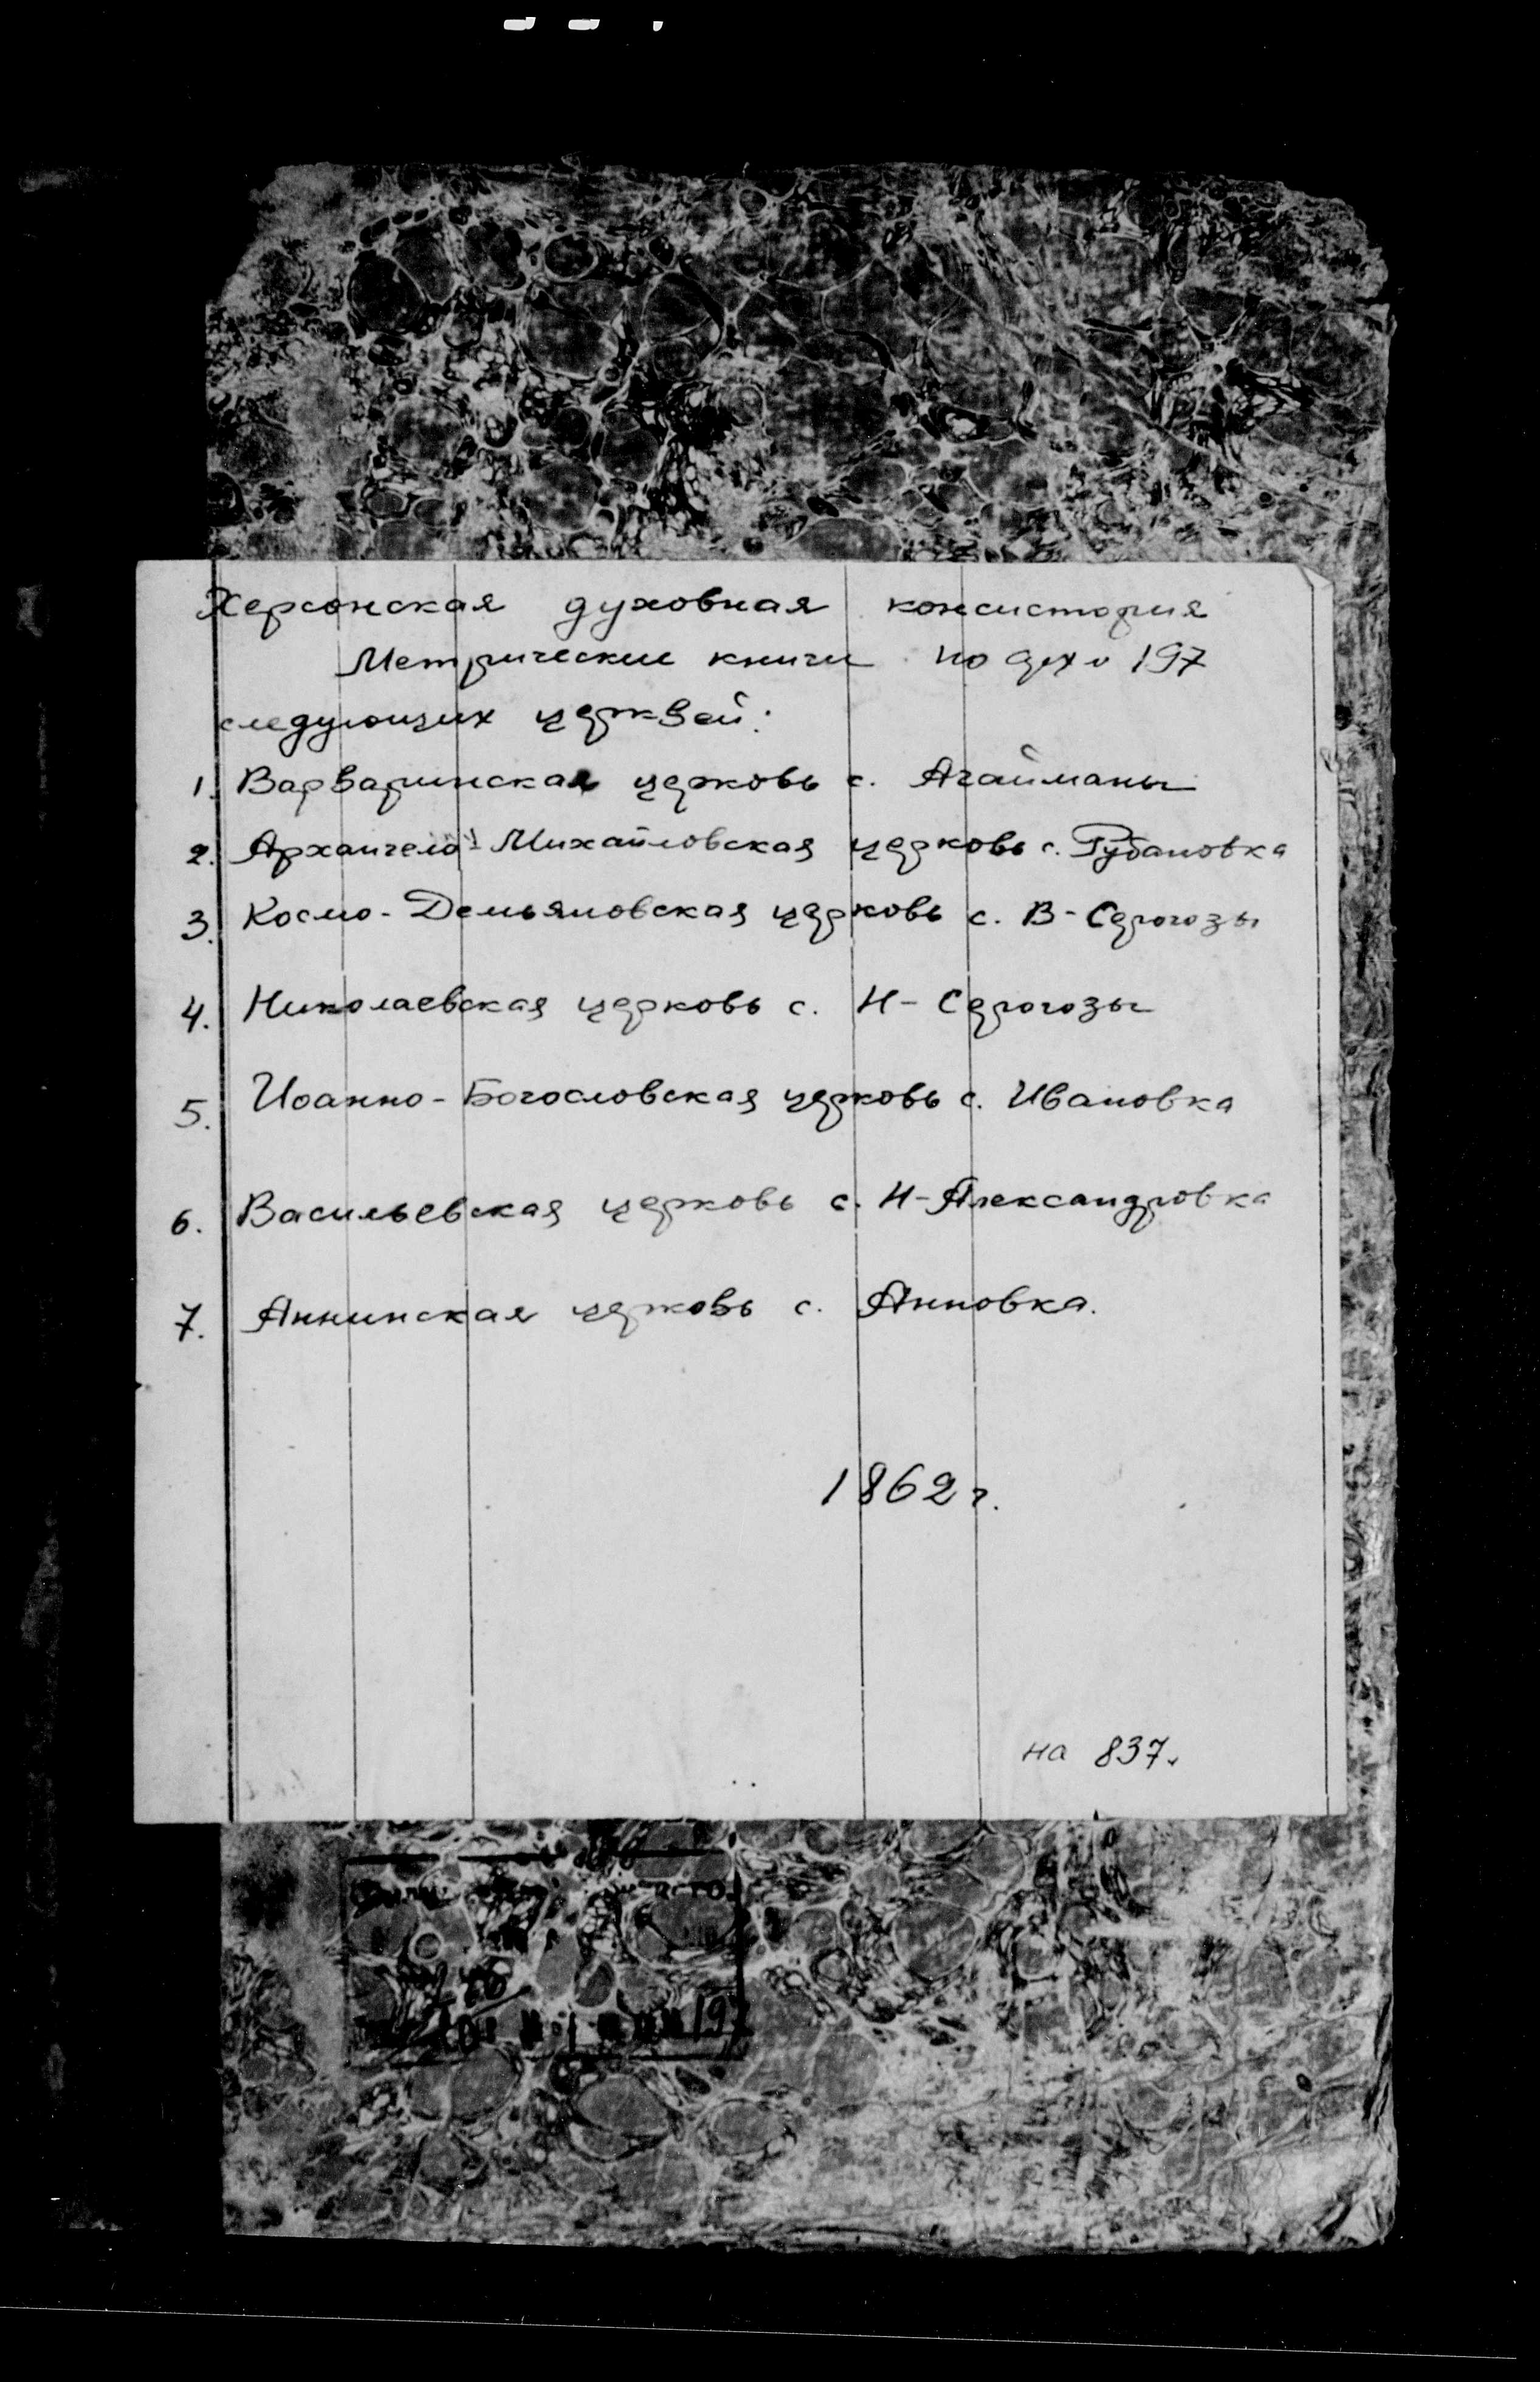 Херсонская духовная консистория
Метрические книги по арх № 197
следующих церквей:
1. Варваринская церковь с. Агайманы
2. Архангело-Михайловская церковь с. Рубановка
3. Космо-Демьяновская церковь с. В-Серогозы
4. Николаевская церковь с. Н-Серогозы
5. Иоанно-Богословская церковь с. Ивановка
6. Васильевская церковь с. Н-Александровка
7. Аннинская церковь с. Анновка.
1862 г.
на 837.
197